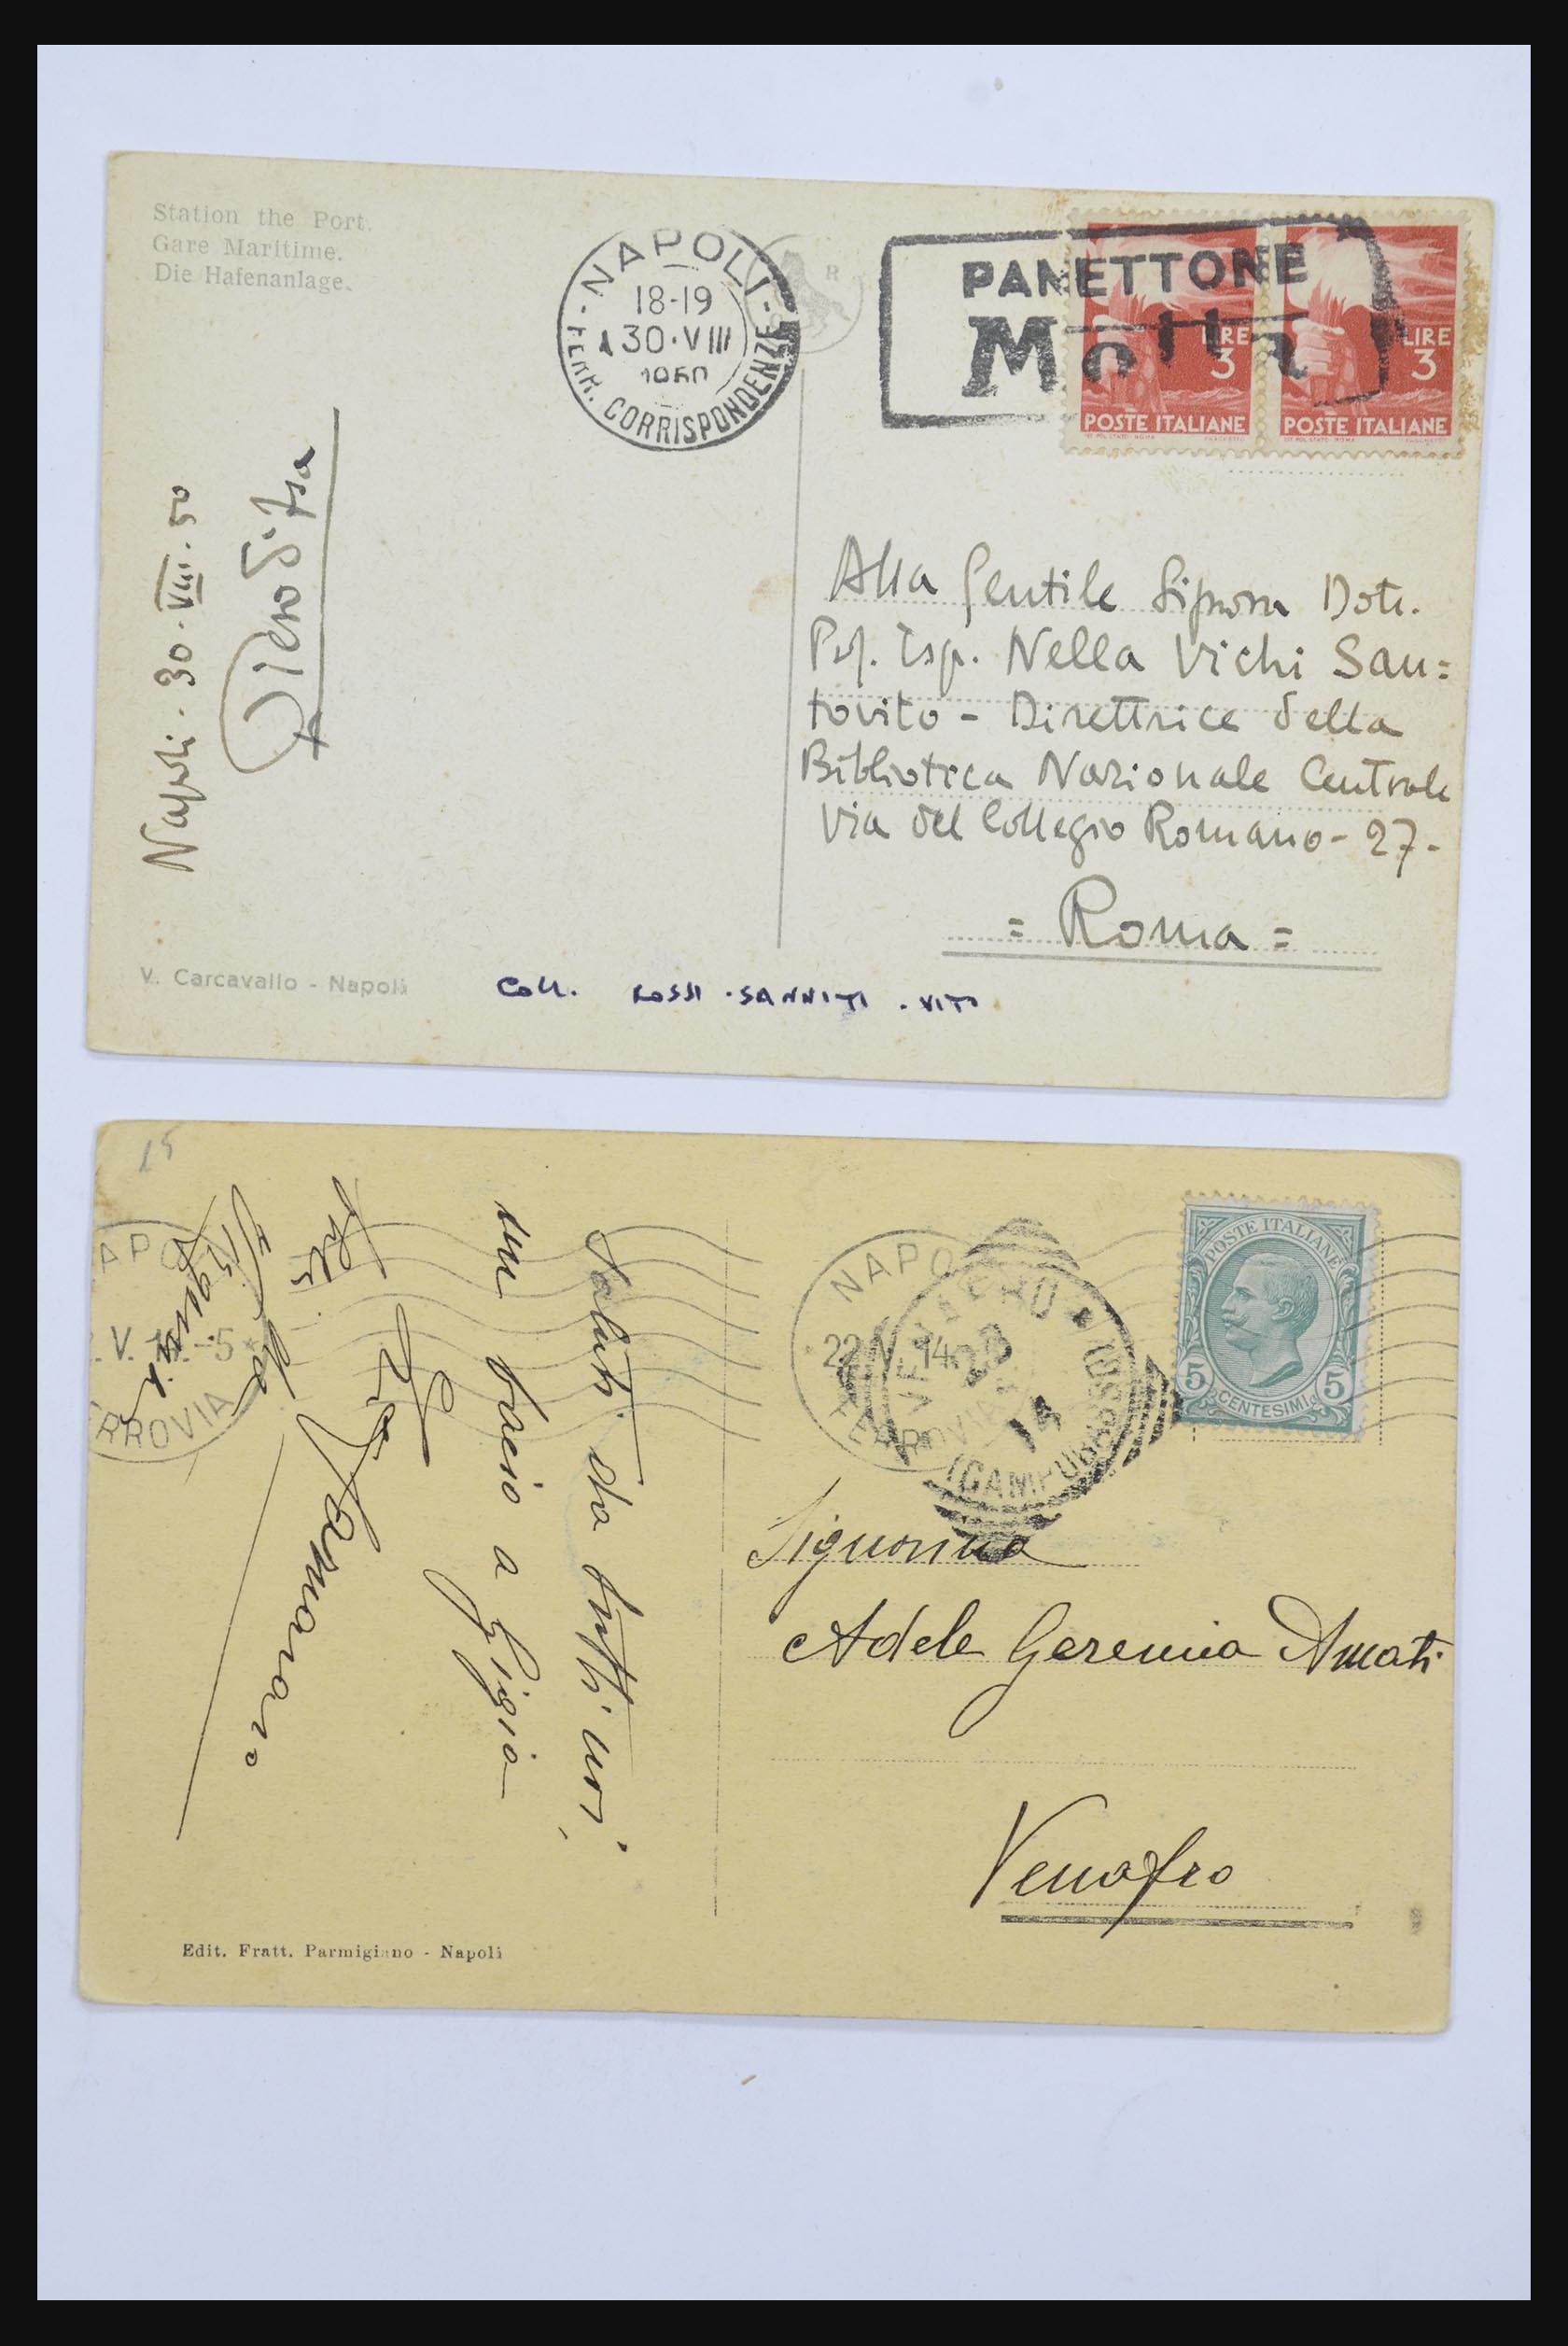 Station the Port.
Gare Maritime.
Die Hafenanlage.
NAPOLI
18-19
30·VIII
1950
FERR. CORRISPONDENZE
PANETTONE
Motta
LIRE
3
POSTE ITALIANE
LIRE
3
POSTE ITALIANE
Napoli - 30.VIII.50
Alla Gentile Signora Dott.
Prof. Isp. Nella Vichi San=
tovito - Direttrice della
Biblioteca Nazionale Centrale
Via del Collegio Romano - 27 -
= Roma =
V. Carcavallo - Napoli
Coll. ROSSI · SANNITI · VITI
15
NAPO
22 V 14
FERROVIA
VENAFRO
14
(CAMPOBASSO)
POSTE ITALIANE
5 CENTESIMI 5
APO
V. -5
RROVIA
Saluti da tutti noi,
un bacio a Gigia
Signorina
Adele Geremia Amati
Venafro
Edit. Fratt. Parmigiano - Napoli